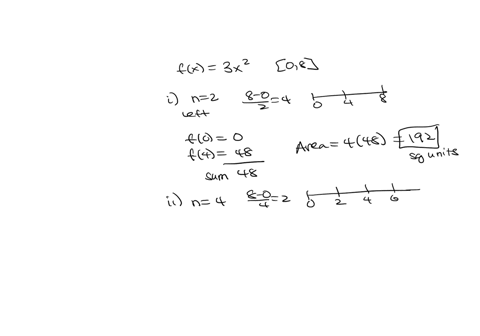 f(x) = 3x² [0,8]
i) n=2 8-0/2 = 4 0 4 8
left
f(0) = 0
f(4) = 48 Area = 4(48) = 192
sum 48 sq units
ii) n=4 8-0/4 = 2 0 2 4 6